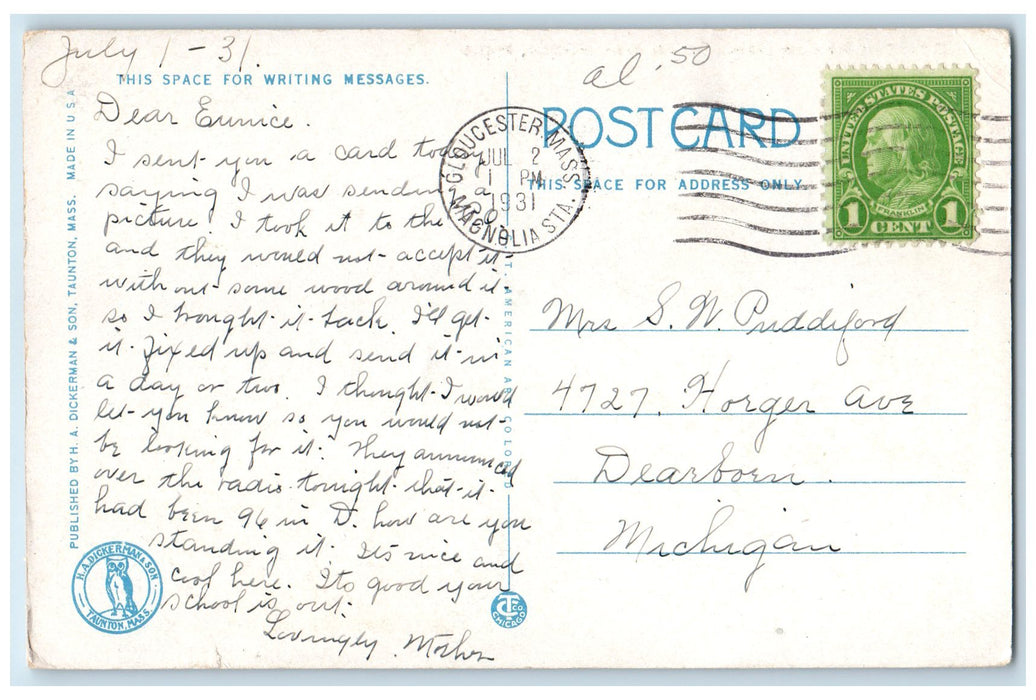 July 1 - 31.
al .50
THIS SPACE FOR WRITING MESSAGES.
Dear Eunice.
I sent you a card today
saying I was sending a
picture. I took it to the
and they would not accept it
with out some wood around it
so I brought it back. I'll get
it fixed up and send it in
a day or two. I thought I would
let you know so you would not
be looking for it. They announced
over the radio tonight that it
had been 96 in D. how are you
standing it. Its nice and
cool here. Its good your
school is out.
Lovingly Mother
PUBLISHED BY H. A. DICKERMAN & SON, TAUNTON, MASS. MADE IN U S A
H.A. DICKERMAN & SON
TAUNTON, MASS.
T. AMERICAN ART COLORED
CT CO
CHICAGO
GLOUCESTER, MASS.
JUL 2
1 PM
1931
MAGNOLIA STA.
POST CARD
THIS SPACE FOR ADDRESS ONLY
UNITED STATES POSTAGE
FRANKLIN
1 CENT 1
Mrs S. W. Puddiford
4727. Horger Ave
Dearborn.
Michigan